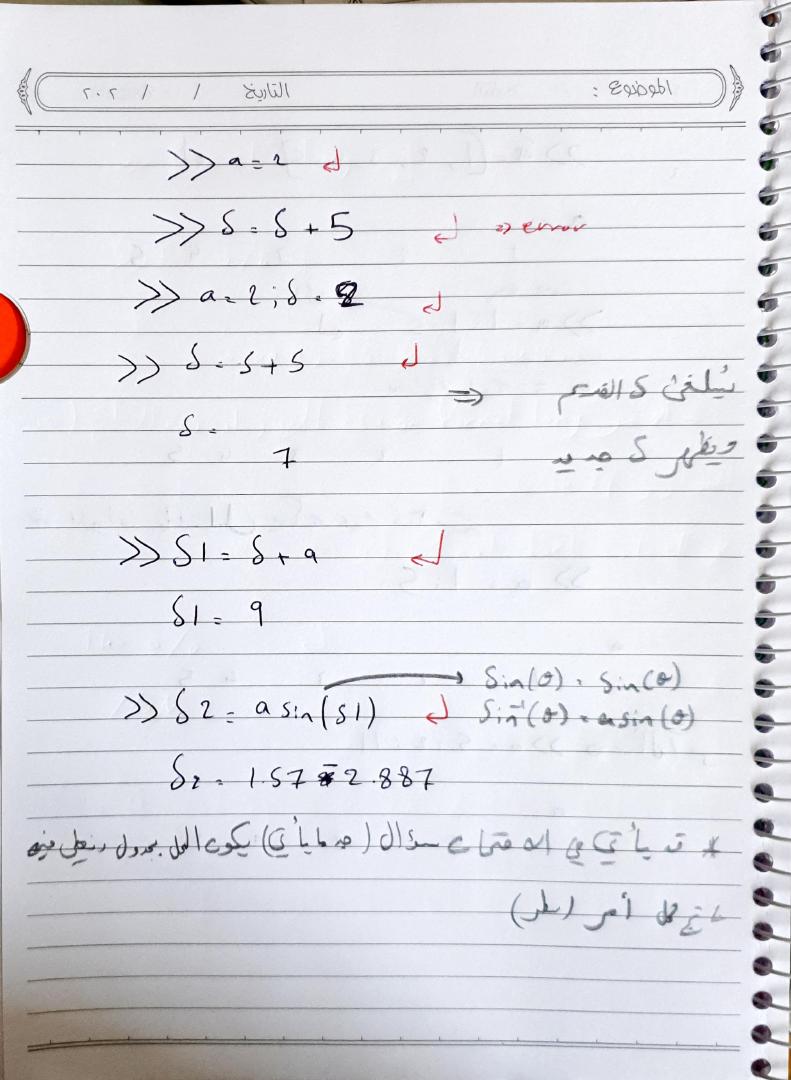 الموضوع : التاريخ / / ٢٠٢
>> a = 2 ↲
>> δ = δ + 5 ↲ => error
>> a = 2 ; δ = 2 ↲
>> δ = δ + 5 ↲
δ = 7
=> يُلغى δ القديم
ويظهر δ جديد
>> δ1 = δ + a ↲
δ1 = 9
>> δ2 = asin(δ1) ↲
δ2 = 1.57 - 2.887
Sin(θ) = sin(θ)
Sin⁻¹(θ) = asin(θ)
* قد يأتي في الامتحان سؤال (جد ما يأتي) يكون الحل بجدول
ناتج كل أمر (سطر)